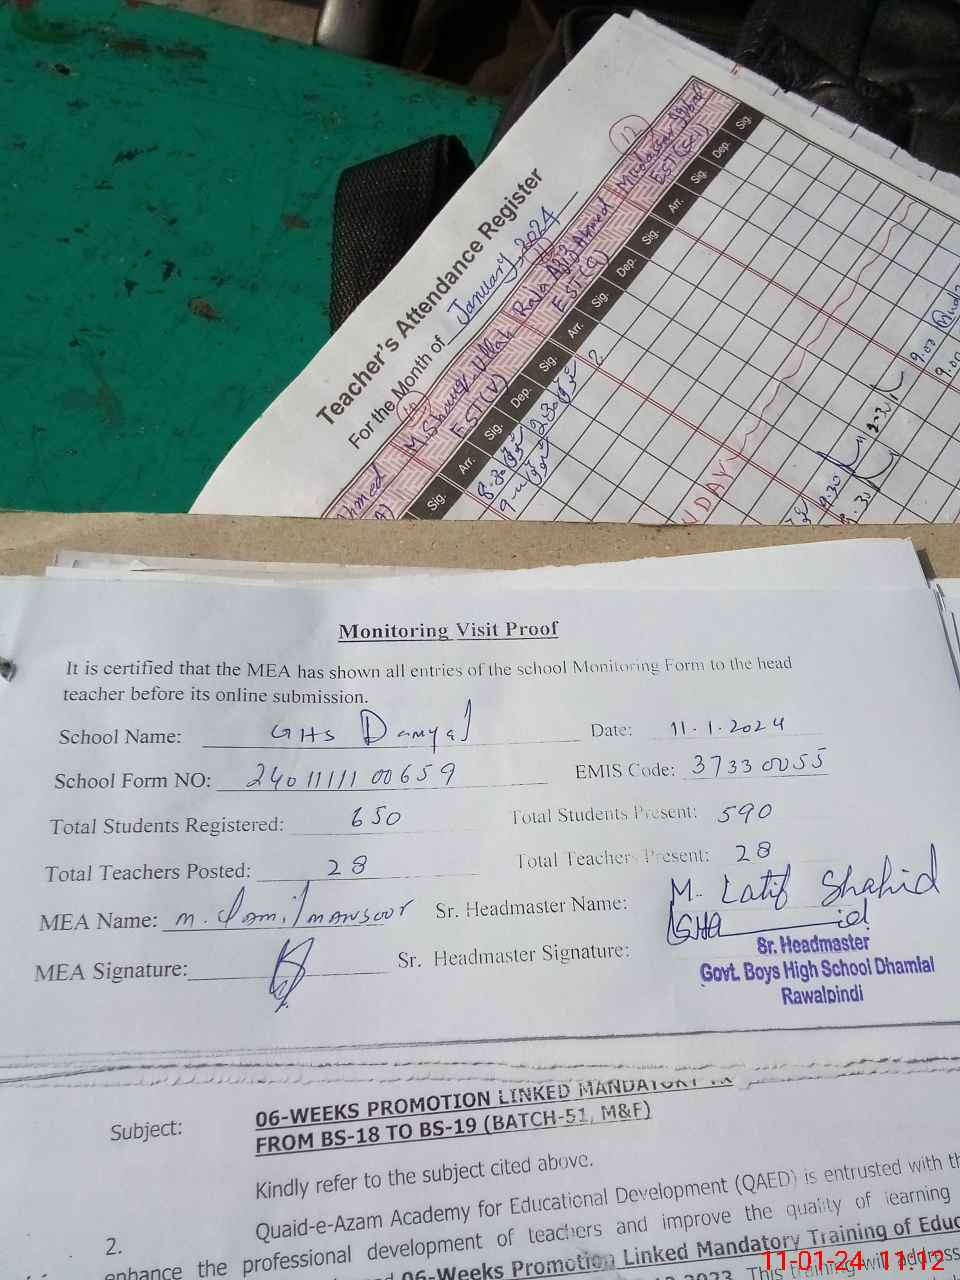 Teacher's Attendance Register
For the Month of January, 2024
12
Mudassar Iqbal
EST (
Raja Abid Ahmed
EST (
M. Shauk Ullah
EST (V)
Ahmed
Sig. Arr. Sig. Dep. Sig. Arr. Sig. Dep. Sig. Arr. Sig. Dep. Sig.
8.30 2.30
9.00
9.00
NDAY
Monitoring Visit Proof
It is certified that the MEA has shown all entries of the school Monitoring Form to the head
teacher before its online submission.
School Name: GHS Damyal Date: 11.1.2024
School Form NO: 24011111 00659 EMIS Code: 37330055
Total Students Registered: 650 Total Students Present: 590
Total Teachers Posted: 28 Total Teachers Present: 28
MEA Name: M. Jamil MANSOOR Sr. Headmaster Name: M. Latif Shahid
MEA Signature: Sr. Headmaster Signature:
Sr. Headmaster
Govt. Boys High School Dhamial
Rawalpindi
Subject: 06-WEEKS PROMOTION LINKED MANDATORY
FROM BS-18 TO BS-19 (BATCH-51, M&F)
Kindly refer to the subject cited above.
2. Quaid-e-Azam Academy for Educational Development (QAED) is entrusted with
enhance the professional development of teachers and improve the quality of learning
06-Weeks Promotion Linked Mandatory Training of Educ
2023. This training will address
11-01-24 11:12